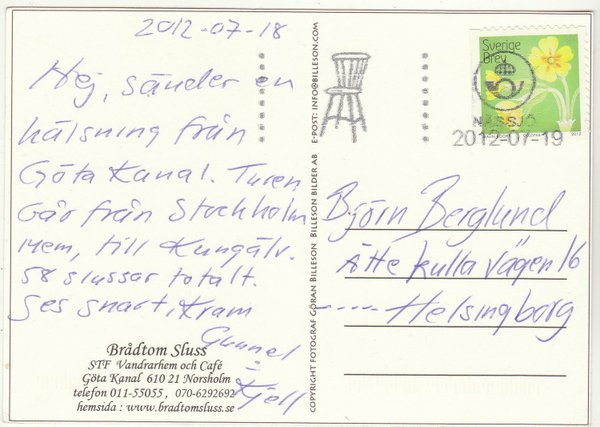 2012-07-18
Hej, sänder en
hälsning från
Göta Kanal. Turen
Går från Stockholm
hem, till Kungälv.
58 slussar totalt.
Ses snart, Kram
Gunnel
Kjell
Brådtom Sluss
STF Vandrarhem och Café
Göta Kanal 610 21 Norsholm
telefon 011-55055, 070-6292692
hemsida : www.bradtomsluss.se
COPYRIGHT FOTOGRAF GÖRAN BILLESON BILLESON BILDER AB E-POST: INFO@BILLESON.COM
Sverige
Brev
NÄSSJÖ
2012-07-19
Björn Berglund
Ättekulla vägen 16
Helsingborg